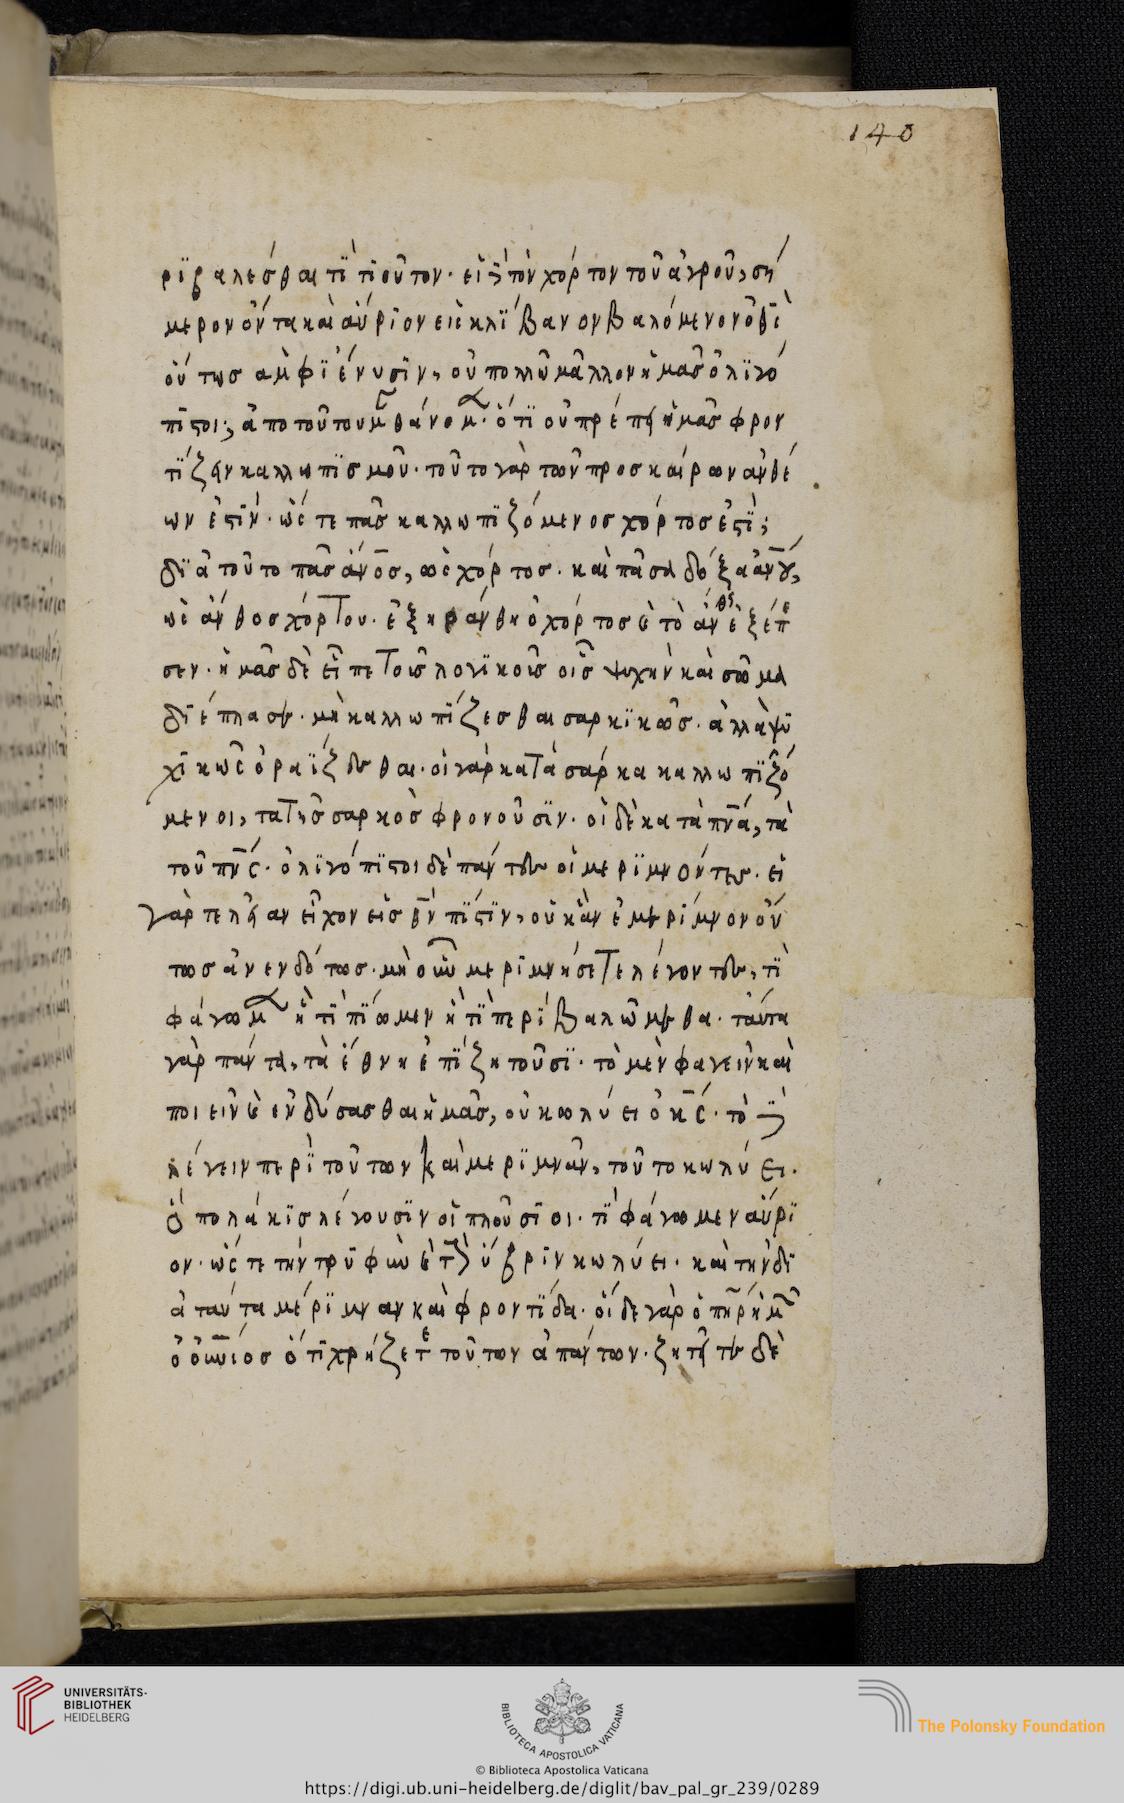 140
ριβαλέσθαι τὶ τιοῦτον· εἰ δὲ τὸν χόρτον τοῦ ἀγροῦ, σή
μερον ὄντα καὶ αὔριον εἰς κλίβανον βαλόμενον ὁ θς
οὕτως ἀμφιέννυσιν, οὐ πολλῶ μᾶλλον ἡμᾶς ὀλιγό
πιστοι; ἀπο τούτου μανθάνομεν· ὅτι οὐ πρέπει ἡμᾶς φρον
τίζειν καλλωπισμοῦ· τοῦτο γὰρ τῶν προσκαίρων ἀνθέ
ων ἐστίν· ὥστε πᾶς καλλωπιζόμενος χόρτος ἐστὶ;
διὰ τοῦτο πᾶς ἄνος, ὡς χόρτος· καὶ πᾶσα δόξα ἀνου,
ὡς ἄνθος χόρτου· ἐξηράνθη ὁ χόρτος καὶ τὸ ἄνθος ἐξέπε
σεν· ἡμᾶς δὲ εἶπε τοῖς λογικοῖς οἷς ψυχὴν καὶ σῶμα
διέπλασεν· μὴ καλλωπίζεσθαι σαρκικῶς· ἀλλὰ ψυ
χικῶς ὁραΐζεσθαι· οἱ γὰρ κατὰ σάρκα καλλωπιζό
μενοι, τὰ τῆς σαρκὸς φρονοῦσιν· οἱ δὲ κατὰ πνα, τὰ
τοῦ πνς· ὀλιγόπιστοι δὲ πάντες οἱ μεριμνόντες· εἰ
γὰρ τελείαν εἶχον εἰς θν πίστιν, οὐκ ἂν ἐμερίμνον οὕ
τως ἀνενδότως· μὴ οὖν μεριμνήσετε λέγοντες, τὶ
φάγωμεν ἢ τὶ πίωμεν ἢ τὶ περιβαλώμεθα· ταύτα
γὰρ πάντα, τὰ ἔθνη ἐπιζητοῦσι· τὸ μὲν φαγεῖν καὶ
ποιεῖν καὶ ἐνδύσασθαι ἡμᾶς, οὐ κωλύει ὁ κς· τὸ δὲ
λέγειν περὶ τούτων καὶ μεριμνᾶν, τοῦτο κωλύει·
ὃ πολάκις λέγουσιν οἱ πλούσιοι· τὶ φάγωμεν αὔρι
ον· ὥστε τὴν τρυφὴν καὶ τὴν ὕβριν κωλύει· καὶ τὴν δι
ὰ ταύτα μέριμναν καὶ φροντίδα· οἶδε γὰρ ὁ πηρ ἡμῶν
ὁ οὐνιος ὅτι χρήζετε τούτων ἁπάντων· ζητεῖτε δὲ
UNIVERSITÄTS-
BIBLIOTHEK
HEIDELBERG
BIBLIOTECA APOSTOLICA VATICANA
The Polonsky Foundation
© Biblioteca Apostolica Vaticana
https://digi.ub.uni-heidelberg.de/diglit/bav_pal_gr_239/0289